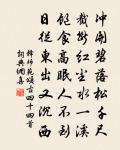 沖開碧落松千尺
截斷紅塵水一溪
飽食高眠人不到
日從東出又沉西
釋師範頌古四十四首
詞典網